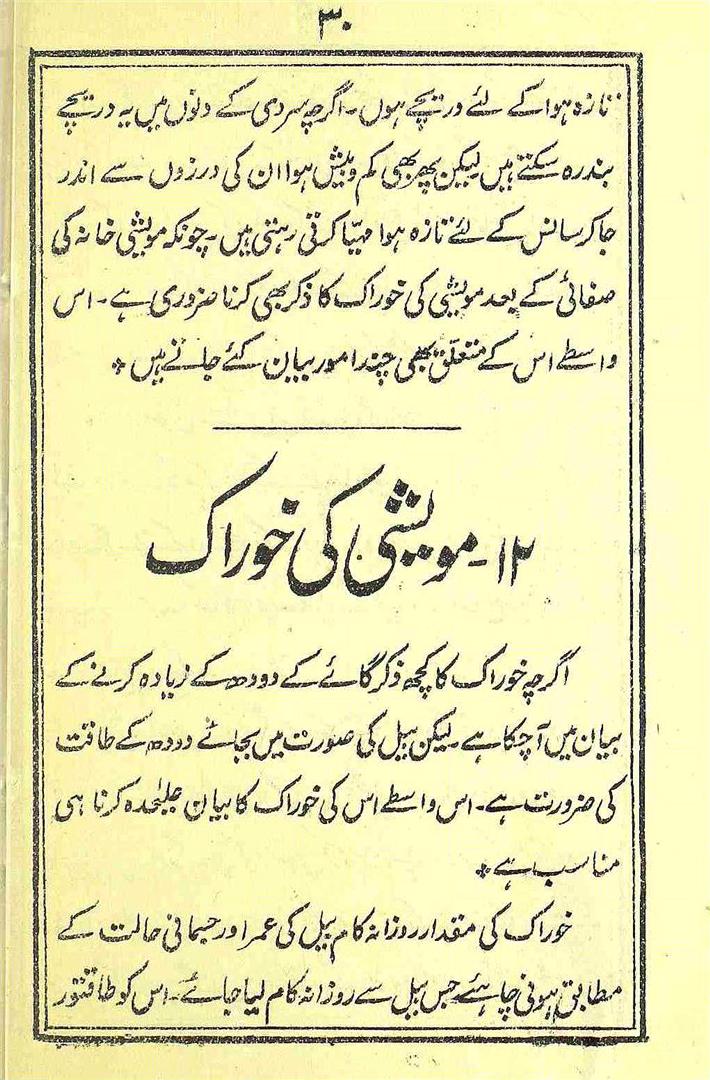 ۳۰
تازہ ہوا کے لئے دریچے ہوں۔ اگرچہ سردی کے دنوں میں یہ دریچے
بند رہ سکتے ہیں لیکن پھر بھی کم و بیش ہوا ان کی درزوں سے اندر
جا کر سانس کے لئے تازہ ہوا مہیّا کرتی رہتی ہیں۔ چونکہ مویشی خانہ کی
صفائی کے بعد مویشی کی خوراک کا ذکر بھی کرنا ضروری ہے۔ اس
واسطے اس کے متعلّق بھی چند امور بیان کئے جاتے ہیں *
۱۲۔ مویشی کی خوراک
اگرچہ خوراک کا کچھ ذکر گائے کے دودھ کے زیادہ کرنے کے
بیان میں آ چکا ہے۔ لیکن بیل کی صورت میں بجائے دودھ کے طاقت
کی ضرورت ہے۔ اس واسطے اس کی خوراک کا بیان علیٰحدہ کرنا ہی
مناسب ہے *
خوراک کی مقدار روزانہ کام بیل کی عمر اور جسمانی حالت کے
مطابق ہونی چاہئے جس بیل سے روزانہ کام لیا جائے۔ اس کو طاقتور